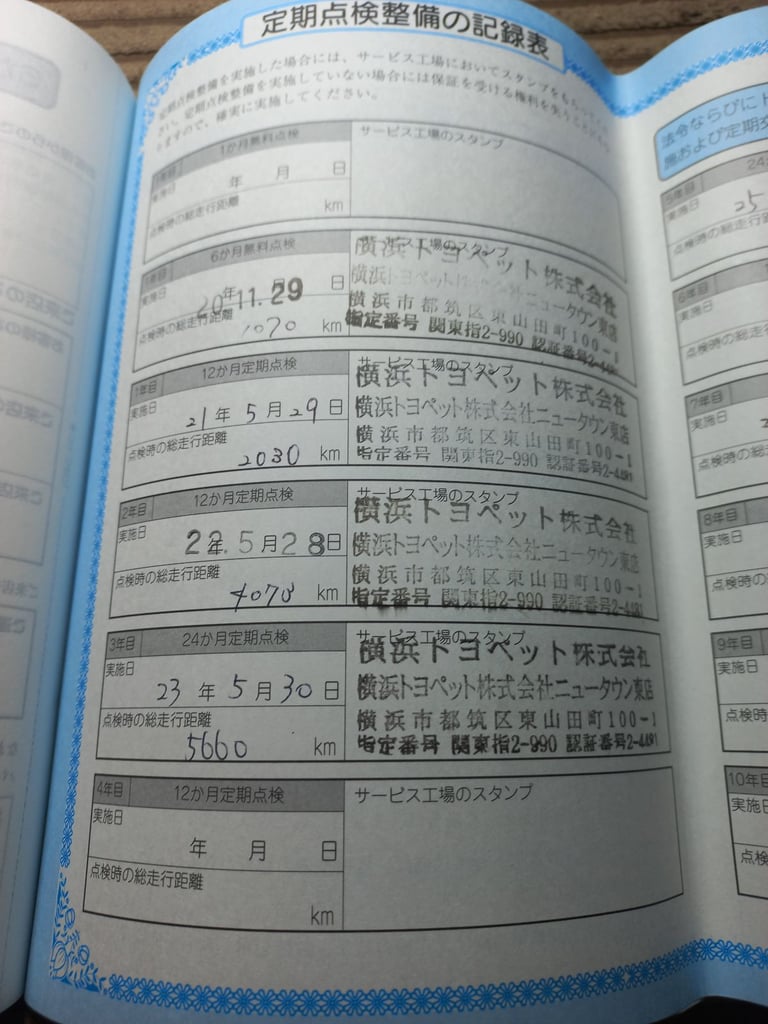 定期点検整備の記録表
定期点検整備を実施した場合には、サービス工場においてスタンプをもらって
さい。定期点検整備を実施していない場合には保証を受ける権利を失うことがあ
りますので、確実に実施してください。
1か月無料点検
サービス工場のスタンプ
実施日
年 月 日
点検時の総走行距離
km
6か月無料点検
サービス工場のスタンプ
実施日
20年11.29日
点検時の総走行距離
1070 km
横浜トヨペット株式会社
横浜トヨペット株式会社ニュータウン東店
横浜市都筑区東山田町100-1
指定番号 関東指2-990 認証番号2-4491
1年目 12か月定期点検
サービス工場のスタンプ
実施日
21年5月29日
点検時の総走行距離
2030 km
横浜トヨペット株式会社
横浜トヨペット株式会社ニュータウン東店
横浜市都筑区東山田町100-1
指定番号 関東指2-990 認証番号2-4491
2年目 12か月定期点検
サービス工場のスタンプ
実施日
22年.5月28日
点検時の総走行距離
4070 km
横浜トヨペット株式会社
横浜トヨペット株式会社ニュータウン東店
横浜市都筑区東山田町100-1
指定番号 関東指2-990 認証番号2-4491
3年目 24か月定期点検
サービス工場のスタンプ
実施日
23年5月30日
点検時の総走行距離
5660 km
横浜トヨペット株式会社
横浜トヨペット株式会社ニュータウン東店
横浜市都筑区東山田町100-1
指定番号 関東指2-990 認証番号2-4491
4年目 12か月定期点検
サービス工場のスタンプ
実施日
年 月 日
点検時の総走行距離
km
法令ならびに
施および定期交
5年目 24
実施日
25
点検時の総走行
6年目
実施日
点検時の総走
7年目
実施日
点検時の総
8年目
実施日
点検時の
9年目
実施日
点検時
10年目
実施日
点検